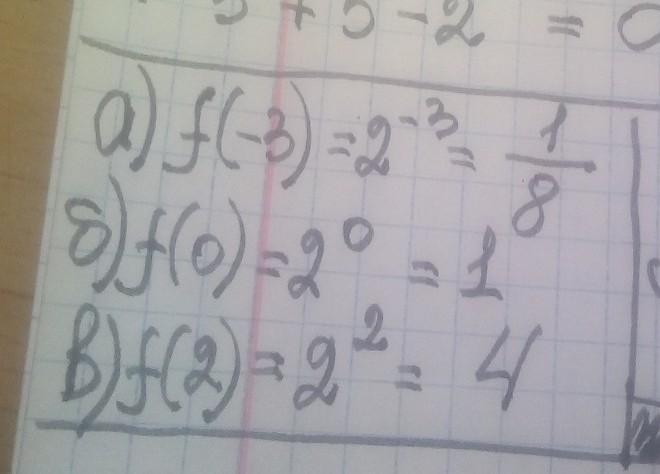 5 + 5 - 2 = 0
а) f(-3) = 2⁻³ = 1/8
б) f(0) = 2⁰ = 1
в) f(2) = 2² = 4